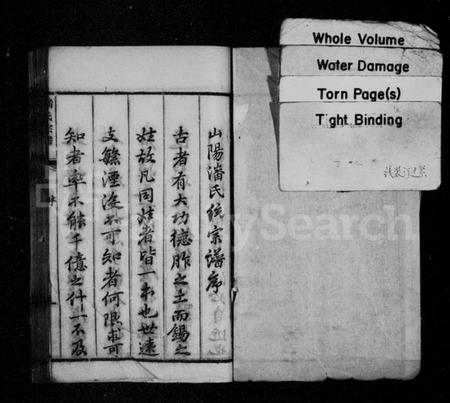 Whole Volume
Water Damage
Torn Page(s)
Tight Binding
線裝訂過緊
山陽潘氏族宗譜序
古者有大功德胙之土而錫之
姓故凡同姓者皆一本也世遠
支繁湮沒不可知者何限求可
知者率不能千億之什一不及